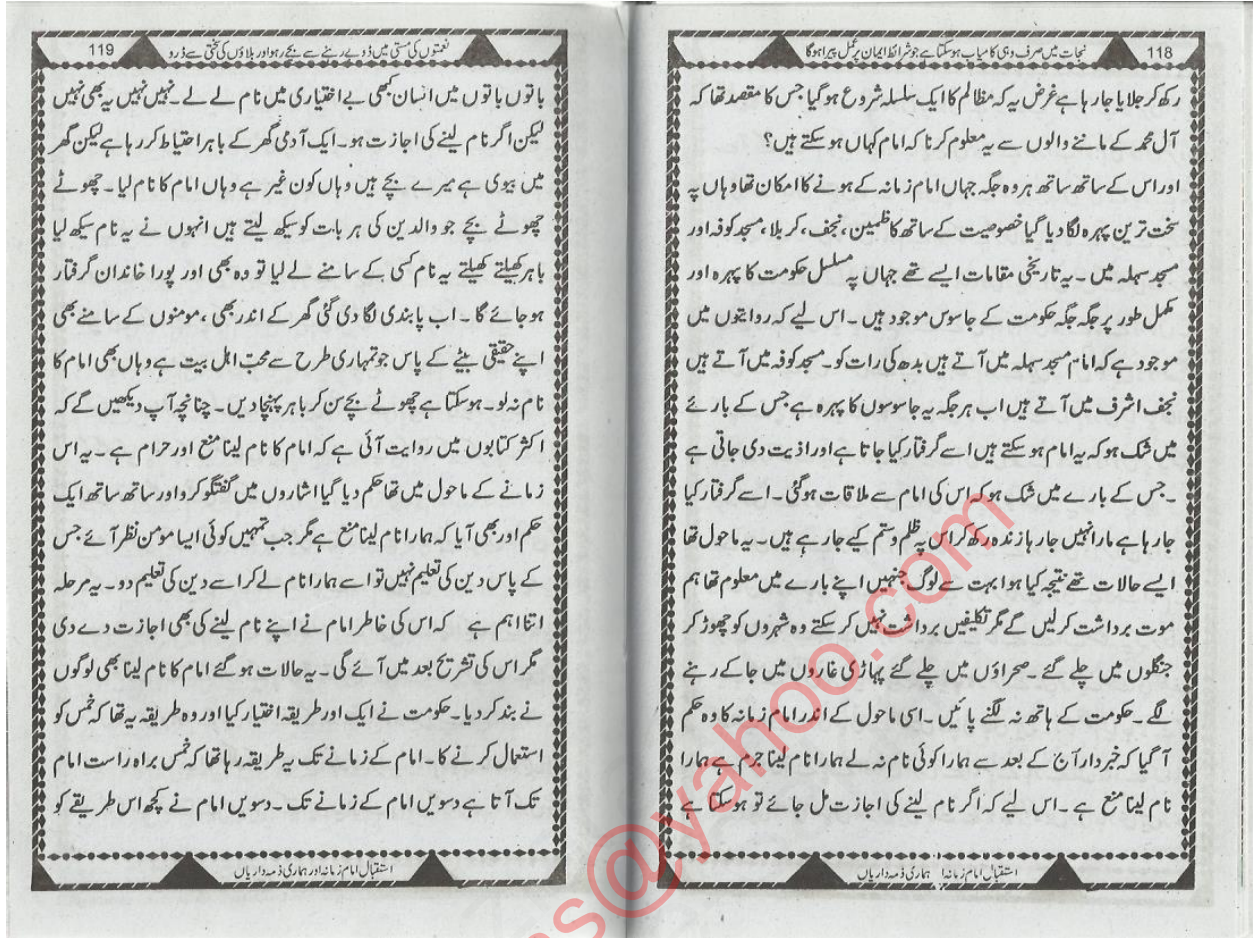 118
نجات میں صرف وہی کامیاب ہوسکتا ہے جو شرائط ایمان پر عمل پیرا ہوگا
رکھ کر جلایا جارہا ہے غرض یہ کہ مظالم کا ایک سلسلہ شروع ہوگیا جس کا مقصد تھا کہ
آل محمد کے ماننے والوں سے یہ معلوم کرنا کہ امام کہاں ہوسکتے ہیں؟
اور اس کے ساتھ ساتھ ہر وہ جگہ جہاں امام زمانہ کے ہونے کا امکان تھا وہاں پہ
سخت ترین پہرہ لگا دیا گیا خصوصیت کے ساتھ کاظمین، نجف، کربلا، مسجد کوفہ اور
مسجد سہلہ میں ۔ یہ تاریخی مقامات ایسے تھے جہاں پہ مسلسل حکومت کا پہرہ اور
مکمل طور پر جگہ جگہ حکومت کے جاسوس موجود ہیں ۔ اس لیے کہ روایتوں میں
موجود ہے کہ امام مسجد سہلہ میں آتے ہیں بدھ کی رات کو۔ مسجد کوفہ میں آتے ہیں
نجف اشرف میں آتے ہیں اب ہر جگہ یہ جاسوسوں کا پہرہ ہے جس کے بارے
میں شک ہو کہ یہ امام ہوسکتے ہیں اسے گرفتار کیا جاتا ہے اور اذیت دی جاتی ہے
۔ جس کے بارے میں شک ہو کہ اس کی امام سے ملاقات ہوگئی ۔ اسے گرفتار کیا
جارہا ہے مارا نہیں جارہا زندہ رکھ کر اس پہ ظلم و ستم کیے جارہے ہیں ۔ یہ ماحول تھا
ایسے حالات تھے نتیجہ کیا ہوا بہت سے لوگ جنہیں اپنے بارے میں معلوم تھا ہم
موت برداشت کرلیں گے مگر تکلیفیں برداشت نہیں کرسکتے وہ شہروں کو چھوڑ کر
جنگلوں میں چلے گئے ۔ صحراؤں میں چلے گئے پہاڑی غاروں میں جاکے رہنے
لگے ۔ حکومت کے ہاتھ نہ لگنے پائیں ۔ اسی ماحول کے اندر امام زمانہ کا وہ حکم
آگیا کہ خبردار آج کے بعد سے ہمارا کوئی نام نہ لے ہمارا نام لینا جرم ہے ہمارا
نام لینا منع ہے ۔ اس لیے کہ اگر نام لینے کی اجازت مل جائے تو ہوسکتا ہے
استقبال امام زمانہ ا ہماری ذمہ داریاں
119
نعمتوں کی مستی میں ڈوبے رہنے سے بچے رہو اور بلاؤں کی سختی سے ڈرو
باتوں باتوں میں انسان کبھی بے اختیاری میں نام لے لے ۔ نہیں نہیں یہ بھی نہیں
لیکن اگر نام لینے کی اجازت ہو۔ ایک آدمی گھر کے باہر احتیاط کررہا ہے لیکن گھر
میں بیوی ہے میرے بچے ہیں وہاں کون غیر ہے وہاں امام کا نام لیا ۔ چھوٹے
چھوٹے بچے جو والدین کی ہر بات کو سیکھ لیتے ہیں انہوں نے یہ نام سیکھ لیا
باہر کھیلتے کھیلتے یہ نام کسی کے سامنے لے لیا تو وہ بھی اور پورا خاندان گرفتار
ہوجائے گا ۔ اب پابندی لگادی گئی گھر کے اندر بھی ، مومنوں کے سامنے بھی
اپنے حقیقی بیٹے کے پاس جو تمہاری طرح سے محب اہل بیت ہے وہاں بھی امام کا
نام نہ لو۔ ہوسکتا ہے چھوٹے بچے سن کر باہر پہنچادیں ۔ چنانچہ آپ دیکھیں گے کہ
اکثر کتابوں میں روایت آئی ہے کہ امام کا نام لینا منع اور حرام ہے ۔ یہ اس
زمانے کے ماحول میں تھا حکم دیا گیا اشاروں میں گفتگو کرو اور ساتھ ساتھ ایک
حکم اور بھی آیا کہ ہمارا نام لینا منع ہے مگر جب تمہیں کوئی ایسا مومن نظر آئے جس
کے پاس دین کی تعلیم نہیں تو اسے ہمارا نام لے کر اسے دین کی تعلیم دو۔ یہ مرحلہ
اتنا اہم ہے کہ اس کی خاطر امام نے اپنے نام لینے کی بھی اجازت دے دی
مگر اس کی تشریح بعد میں آئے گی ۔ یہ حالات ہوگئے امام کا نام لینا بھی لوگوں
نے بند کردیا۔ حکومت نے ایک اور طریقہ اختیار کیا اور وہ طریقہ یہ تھا کہ خمس کو
استعمال کرنے کا۔ امام کے زمانے تک یہ طریقہ رہا تھا کہ خمس براہ راست امام
تک آتا ہے دسویں امام کے زمانے تک ۔ دسویں امام نے کچھ اس طریقے کو
استقبال امام زمانہ اور ہماری ذمہ داریاں
s@yahoo.com